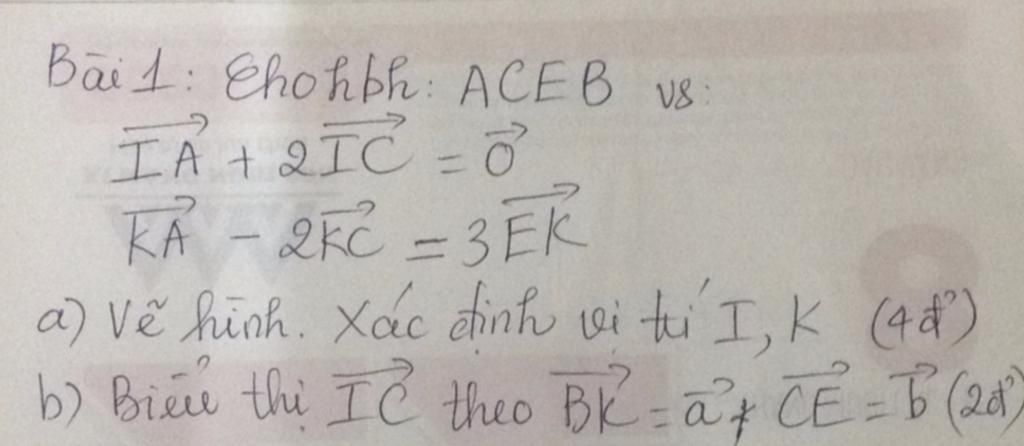 Bài 1: Cho hbh: ACEB vs:
$\overrightarrow{IA} + 2\overrightarrow{IC} = \vec{0}$
$\overrightarrow{KA} - 2\overrightarrow{KC} = 3\overrightarrow{EK}$
a) Vẽ hình. Xác định vị trí I, K (4đ)
b) Biểu thị $\overrightarrow{IC}$ theo $\overrightarrow{BK} = \vec{a}$ & $\overrightarrow{CE} = \vec{b}$ (2đ)